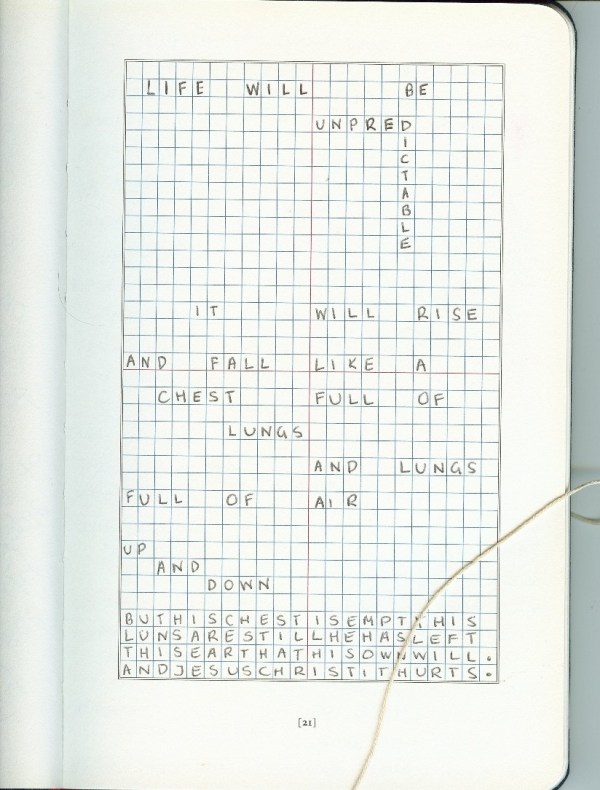 LIFE WILL BE
UNPRED
I
C
T
A
B
L
E
IT WILL RISE
AND FALL LIKE A
CHEST FULL OF
LUNGS
AND LUNGS
FULL OF AIR
UP
AND
DOWN
BUTHISCHESTISEMPTYHIS
LUNSARESTILLHEHASLEFT
THISEARTHATHISOWNWILL.
ANDJESUSCHRISTITHURTS.
[21]